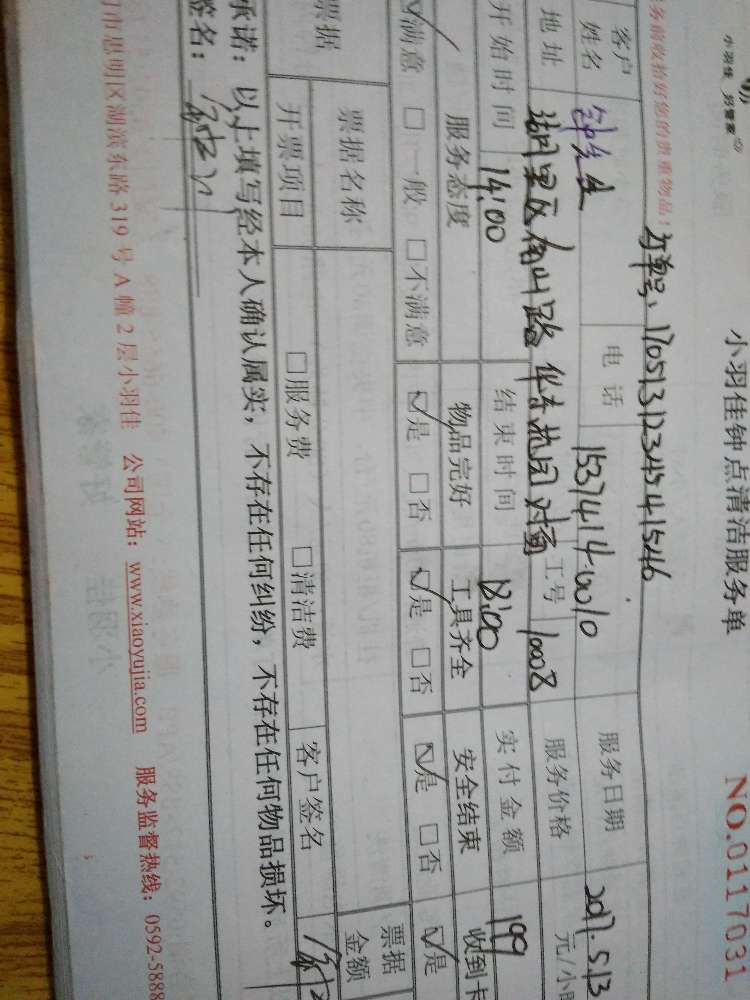 小羽佳 好管家
小羽佳钟点清洁服务单 NO.0117031
务前收拾好您的贵重物品！ 订单号：
客户姓名 钟先生 电话 服务日期 2017.5.13
地址 湖里区 路 对面 工号 10008 服务价格 元/小
开始时间 14:00 结束时间 18:00 实付金额 199
服务态度 物品完好 工具齐全 安全结束 收到卡
☑满意 □一般 □不满意 ☑是 □否 ☑是 □否 ☑是 □否 ☑是
票据 票据名称 票据金额
开票项目 □服务费 □清洁费 客户签名
承诺：以上填写经本人确认属实，不存在任何纠纷，不存在任何物品损坏。
签名：
门市思明区湖滨东路319号A幢2层小羽佳 公司网站：www.xiaoyujia.com 服务监督热线：0592-5888